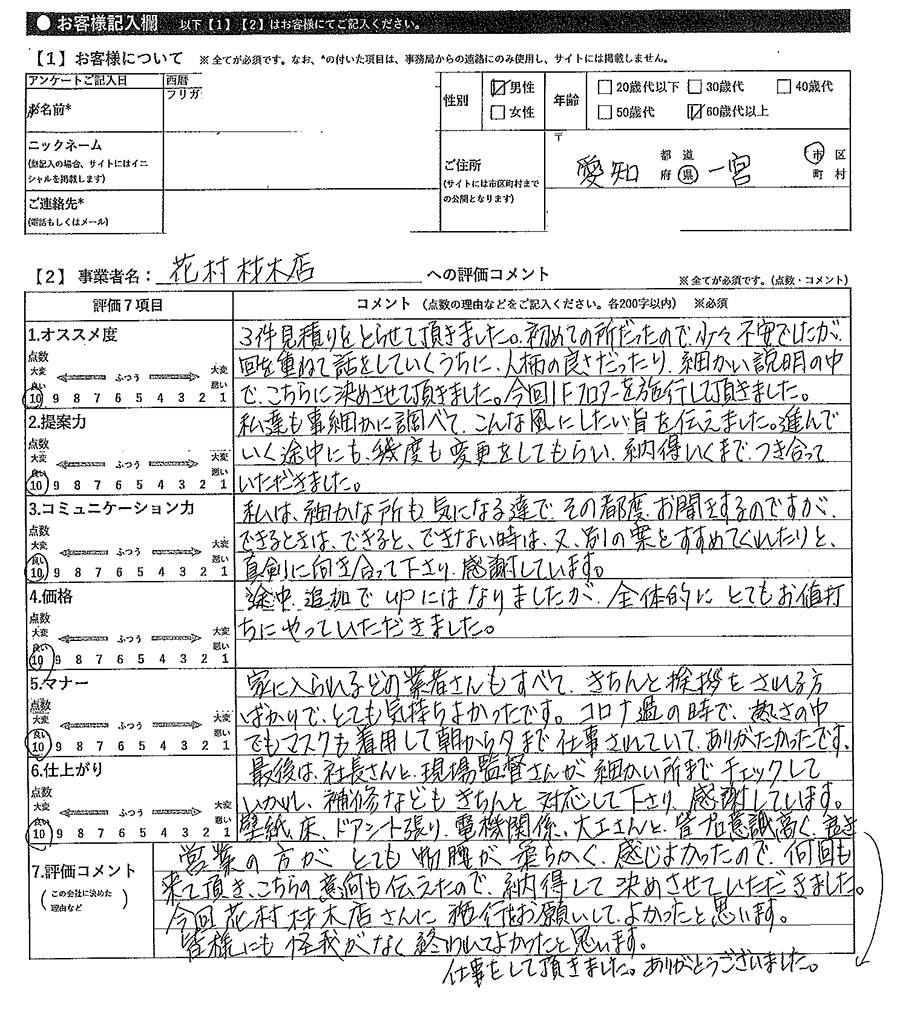 ● お客様記入欄 以下【1】【2】はお客様にてご記入ください。
【1】お客様について ※全てが必須です。なお、*の付いた項目は、事務局からの連絡にのみ使用し、サイトには掲載しません。
アンケートご記入日 西暦
フリガ
お名前*
性別 男性 女性
年齢 20歳代以下 30歳代 40歳代
50歳代 60歳代以上
ニックネーム
(無記入の場合、サイトにはイニ
シャルを掲載します)
ご連絡先*
(電話もしくはメール)
ご住所
(サイトには市区町村まで
の公開となります)
〒
愛知 都道府県 一宮 市区町村
【2】事業者名: 花村材木店 への評価コメント ※全てが必須です。(点数・コメント)
評価7項目 コメント (点数の理由などをご記入ください。各200字以内) ※必須
1.オススメ度
点数
大変良い ふつう 大変悪い
10 9 8 7 6 5 4 3 2 1
3件見積りをとらせて頂きました。初めての所だったので、少々不安でしたが、
回を重ねて話をしていくうちに、人柄の良さだったり、細かい説明の中
で、こちらに決めさせて頂きました。今回1Fフロアーを施行して頂きました。
2.提案力
点数
大変良い ふつう 大変悪い
10 9 8 7 6 5 4 3 2 1
私達も事細かに調べて、こんな風にしたい旨を伝えました。進んで
いく途中にも、幾度も変更をしてもらい、納得いくまで、つき合って
いただきました。
3.コミュニケーション力
点数
大変良い ふつう 大変悪い
10 9 8 7 6 5 4 3 2 1
私は、細かな所も気になる達で、その都度、お聞きをするのですが、
できるときは、できると、できない時は、又、別の案をすすめてくれたりと、
真剣に向き合って下さり、感謝しています。
4.価格
点数
大変良い ふつう 大変悪い
10 9 8 7 6 5 4 3 2 1
途中、追加でUPにはなりましたが、全体的にとてもお値打
ちにやっていただきました。
5.マナー
点数
大変良い ふつう 大変悪い
10 9 8 7 6 5 4 3 2 1
家に入られるどの業者さんもすべて、きちんと挨拶をされる方
ばかりで、とても気持ちよかったです。コロナ過の時で、熱さの中
でもマスクも着用して朝から夕まで仕事されていて、ありがたかったです。
6.仕上がり
点数
大変良い ふつう 大変悪い
10 9 8 7 6 5 4 3 2 1
最後は、社長さんと、現場監督さんが細かい所までチェックして
いかれ、補修などもきちんと対応して下さり、感謝しています。
壁紙、床、ドア、シート張り、電機関係、大工さんと、皆プロ意識高く、良き
7.評価コメント
(この会社に決めた
理由など)
営業の方がとても物腰が柔らかく、感じよかったので、何回も
来て頂き、こちらの意向も伝えたので、納得して決めさせていただきました。
今回花村材木店さんに施行をお願いして、よかったと思います。
皆様にも怪我がなく終われてよかったと思います。
仕事をして頂きました。ありがとうございました。